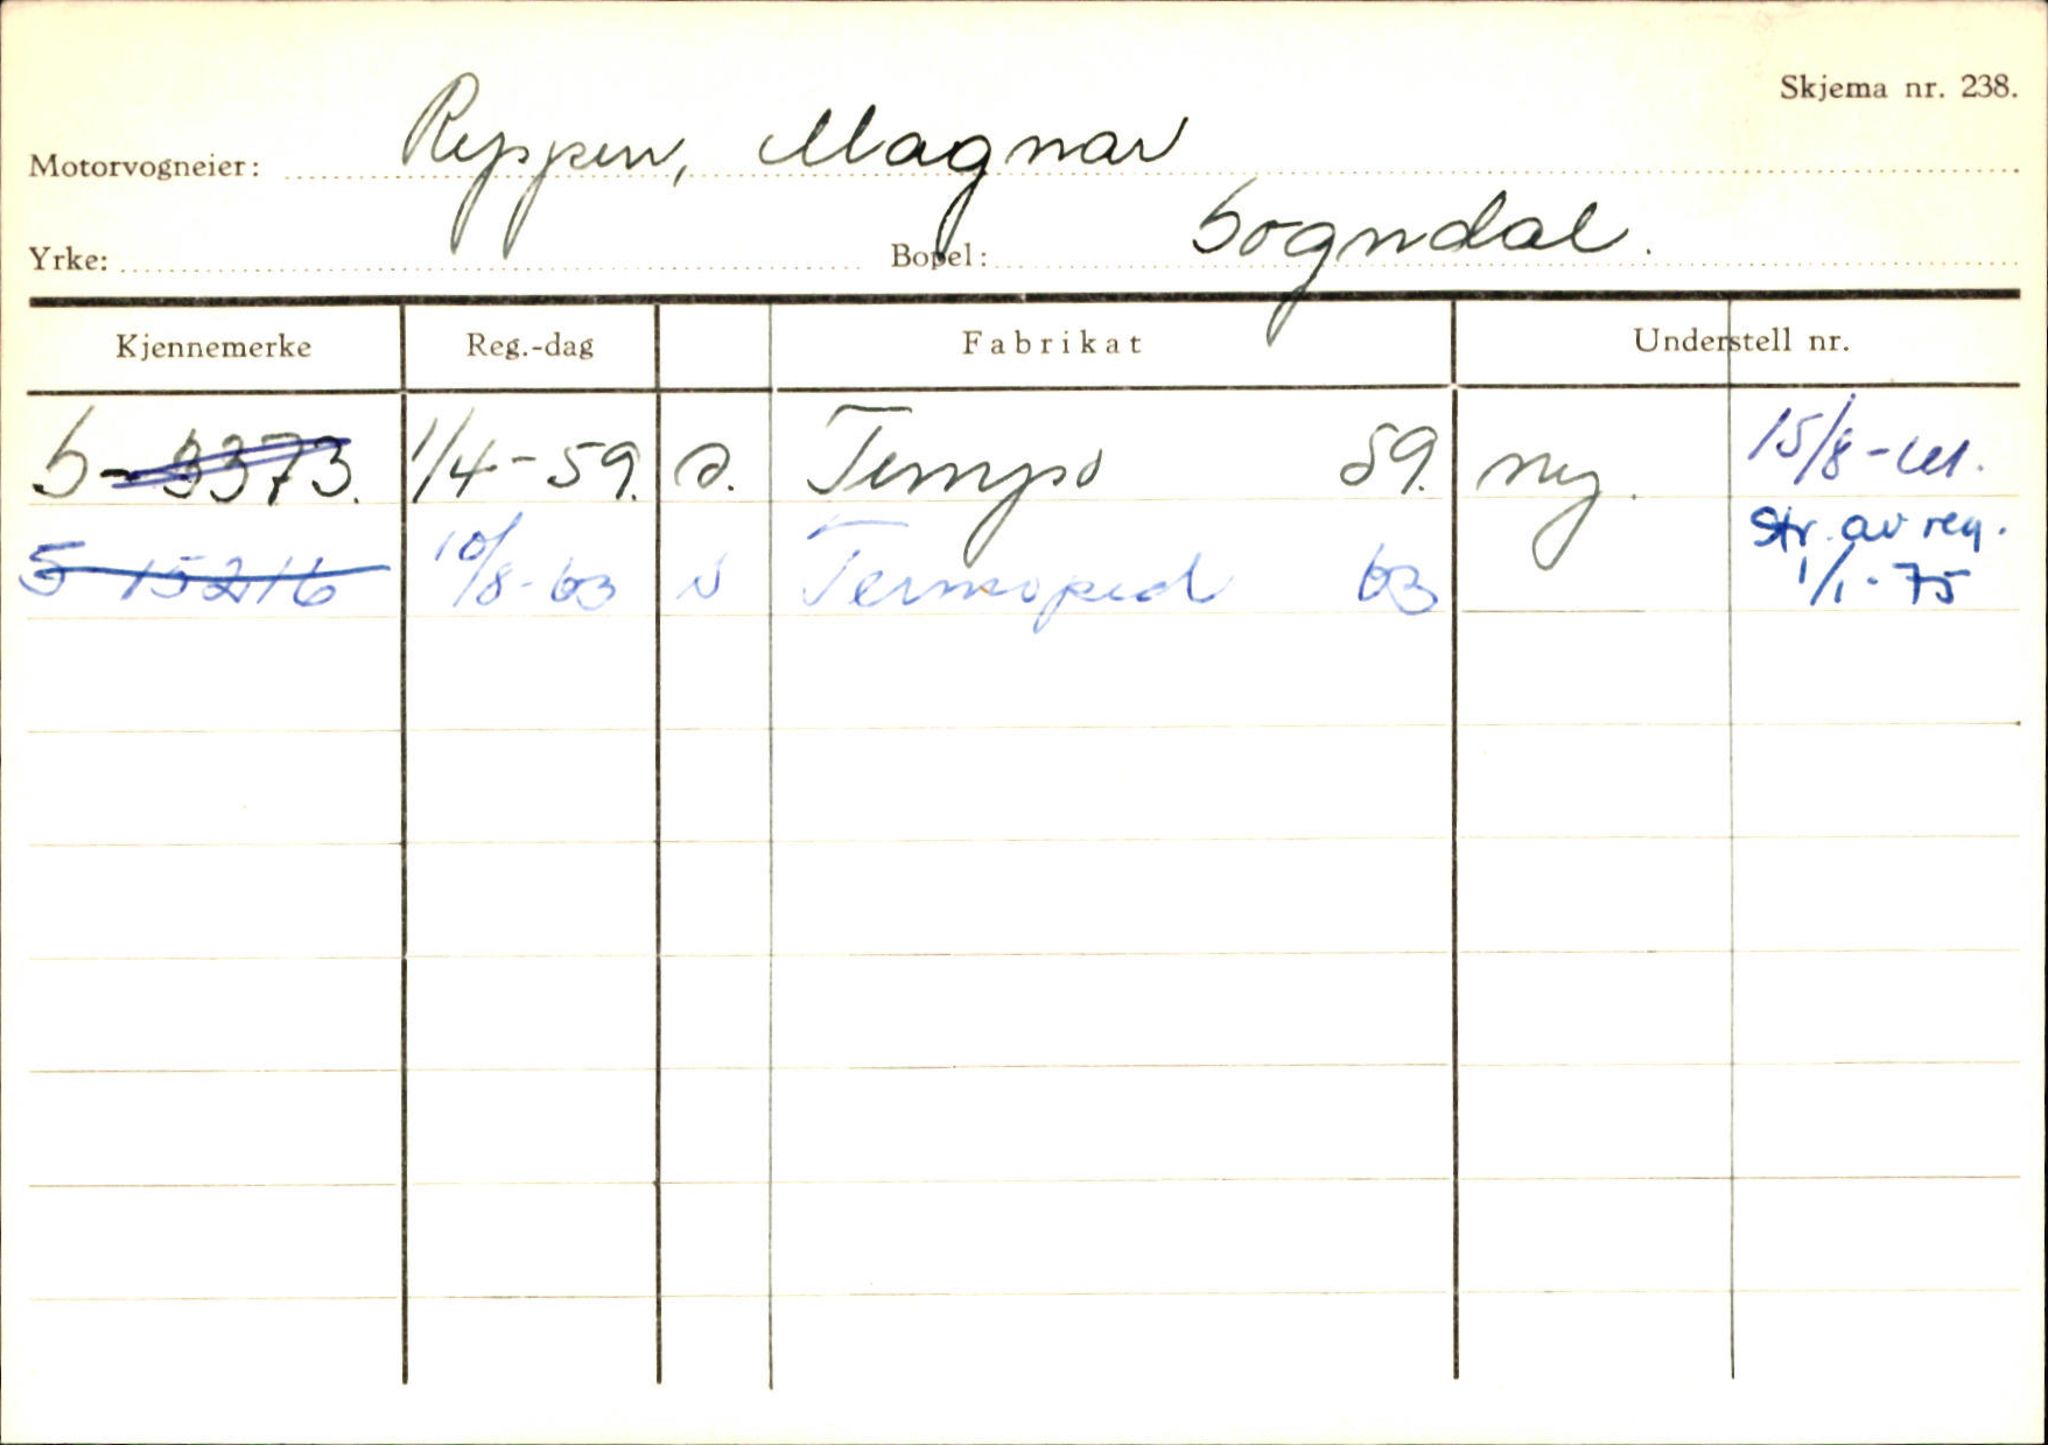 Skjema nr. 238.
Motorvogneier: Reppen, Magnar
Yrke: Bopel: Sogndal.
Kjennemerke Reg.-dag Fabrikat Understell nr.
S-3373. 1/4-59. s. Tempo 59. ny. 15/8-61.
S 15216 10/8-63 s Termoped 63 Str. av reg.
1/1-75